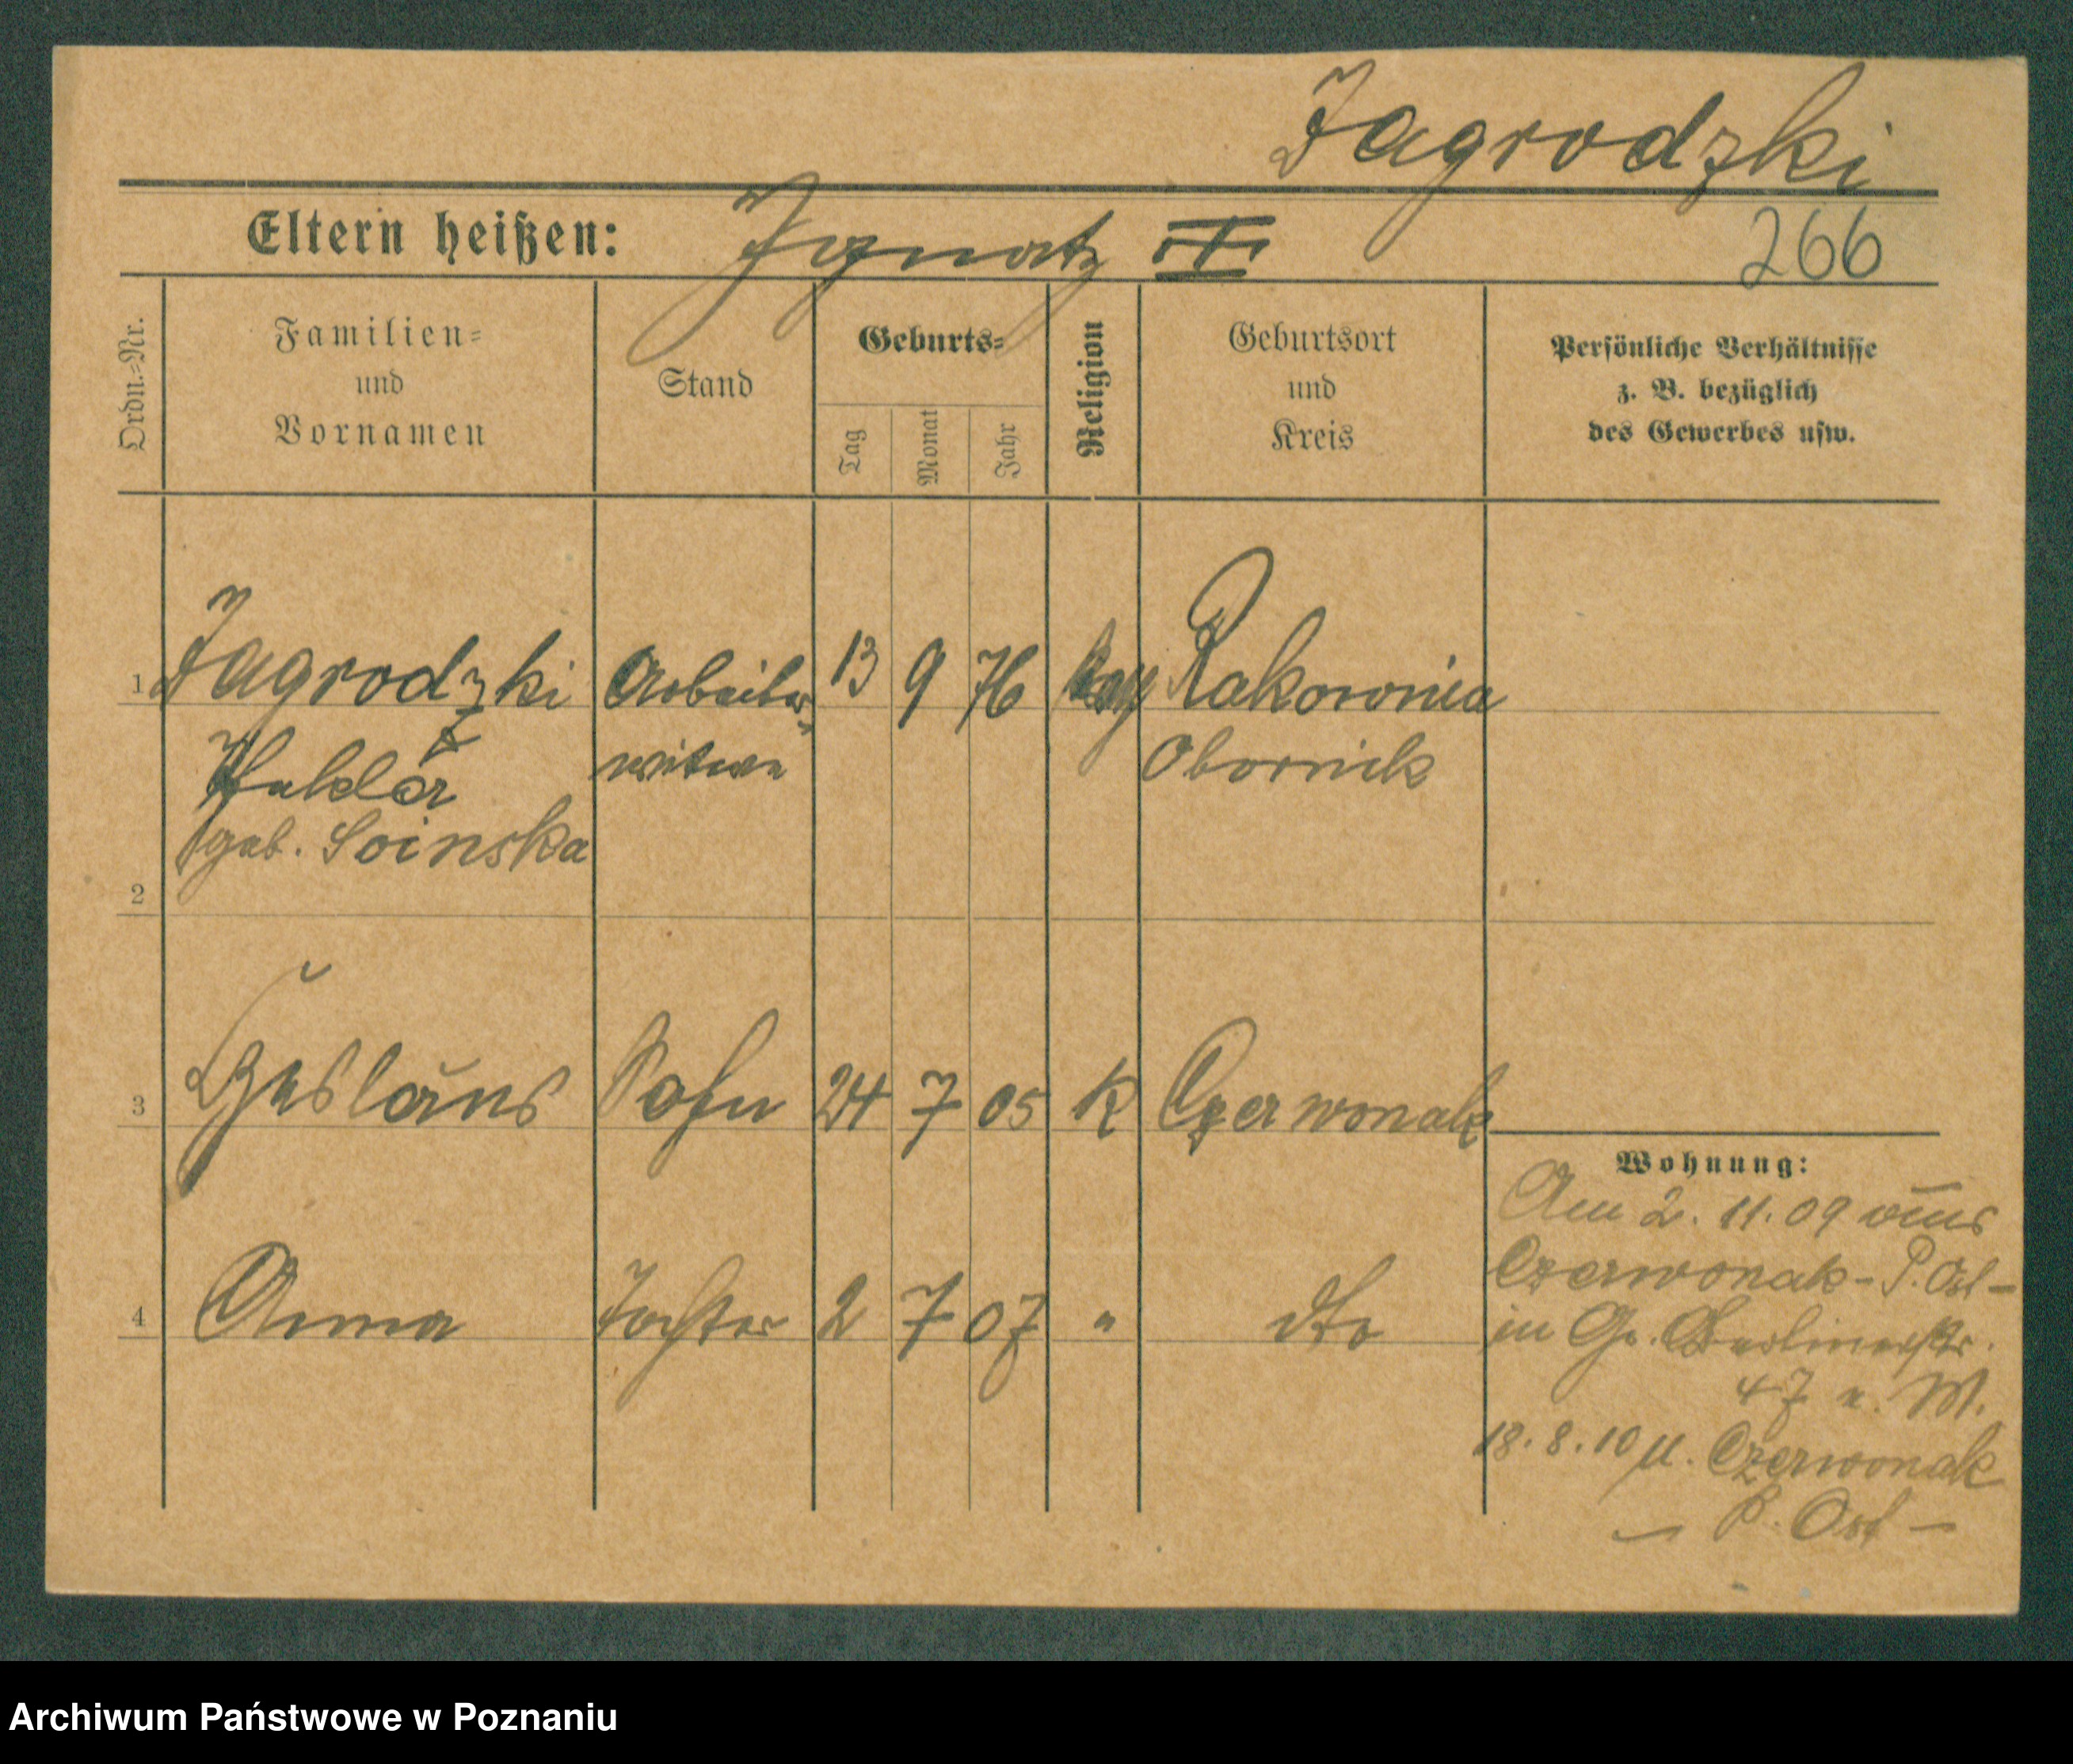 Jagrodzki
Eltern heißen: Ignatz III
266
Ordn.-Nr.
Familien-
und
Vornamen
Stand
Geburts-
Tag
Monat
Jahr
Religion
Geburtsort
und
Kreis
Persönliche Verhältnisse
z. B. bezüglich
des Gewerbes usw.
1 Jagrodzki Arbeiter- 13 9 76 kath Rakownia
witwe Obornik
geb. Soinska
2
3 Sohn 24 7 05 K Czerwonak
Wohnung:
Am 2. 11. 09 aus
Czerwonak - P. Ost -
4 Anna Tochter 2 7 07 " dto
in Gr. Berlinerstr.
47 n. M.
18. 8. 10 n. Czerwonak
- P. Ost -
Archiwum Państwowe w Poznaniu